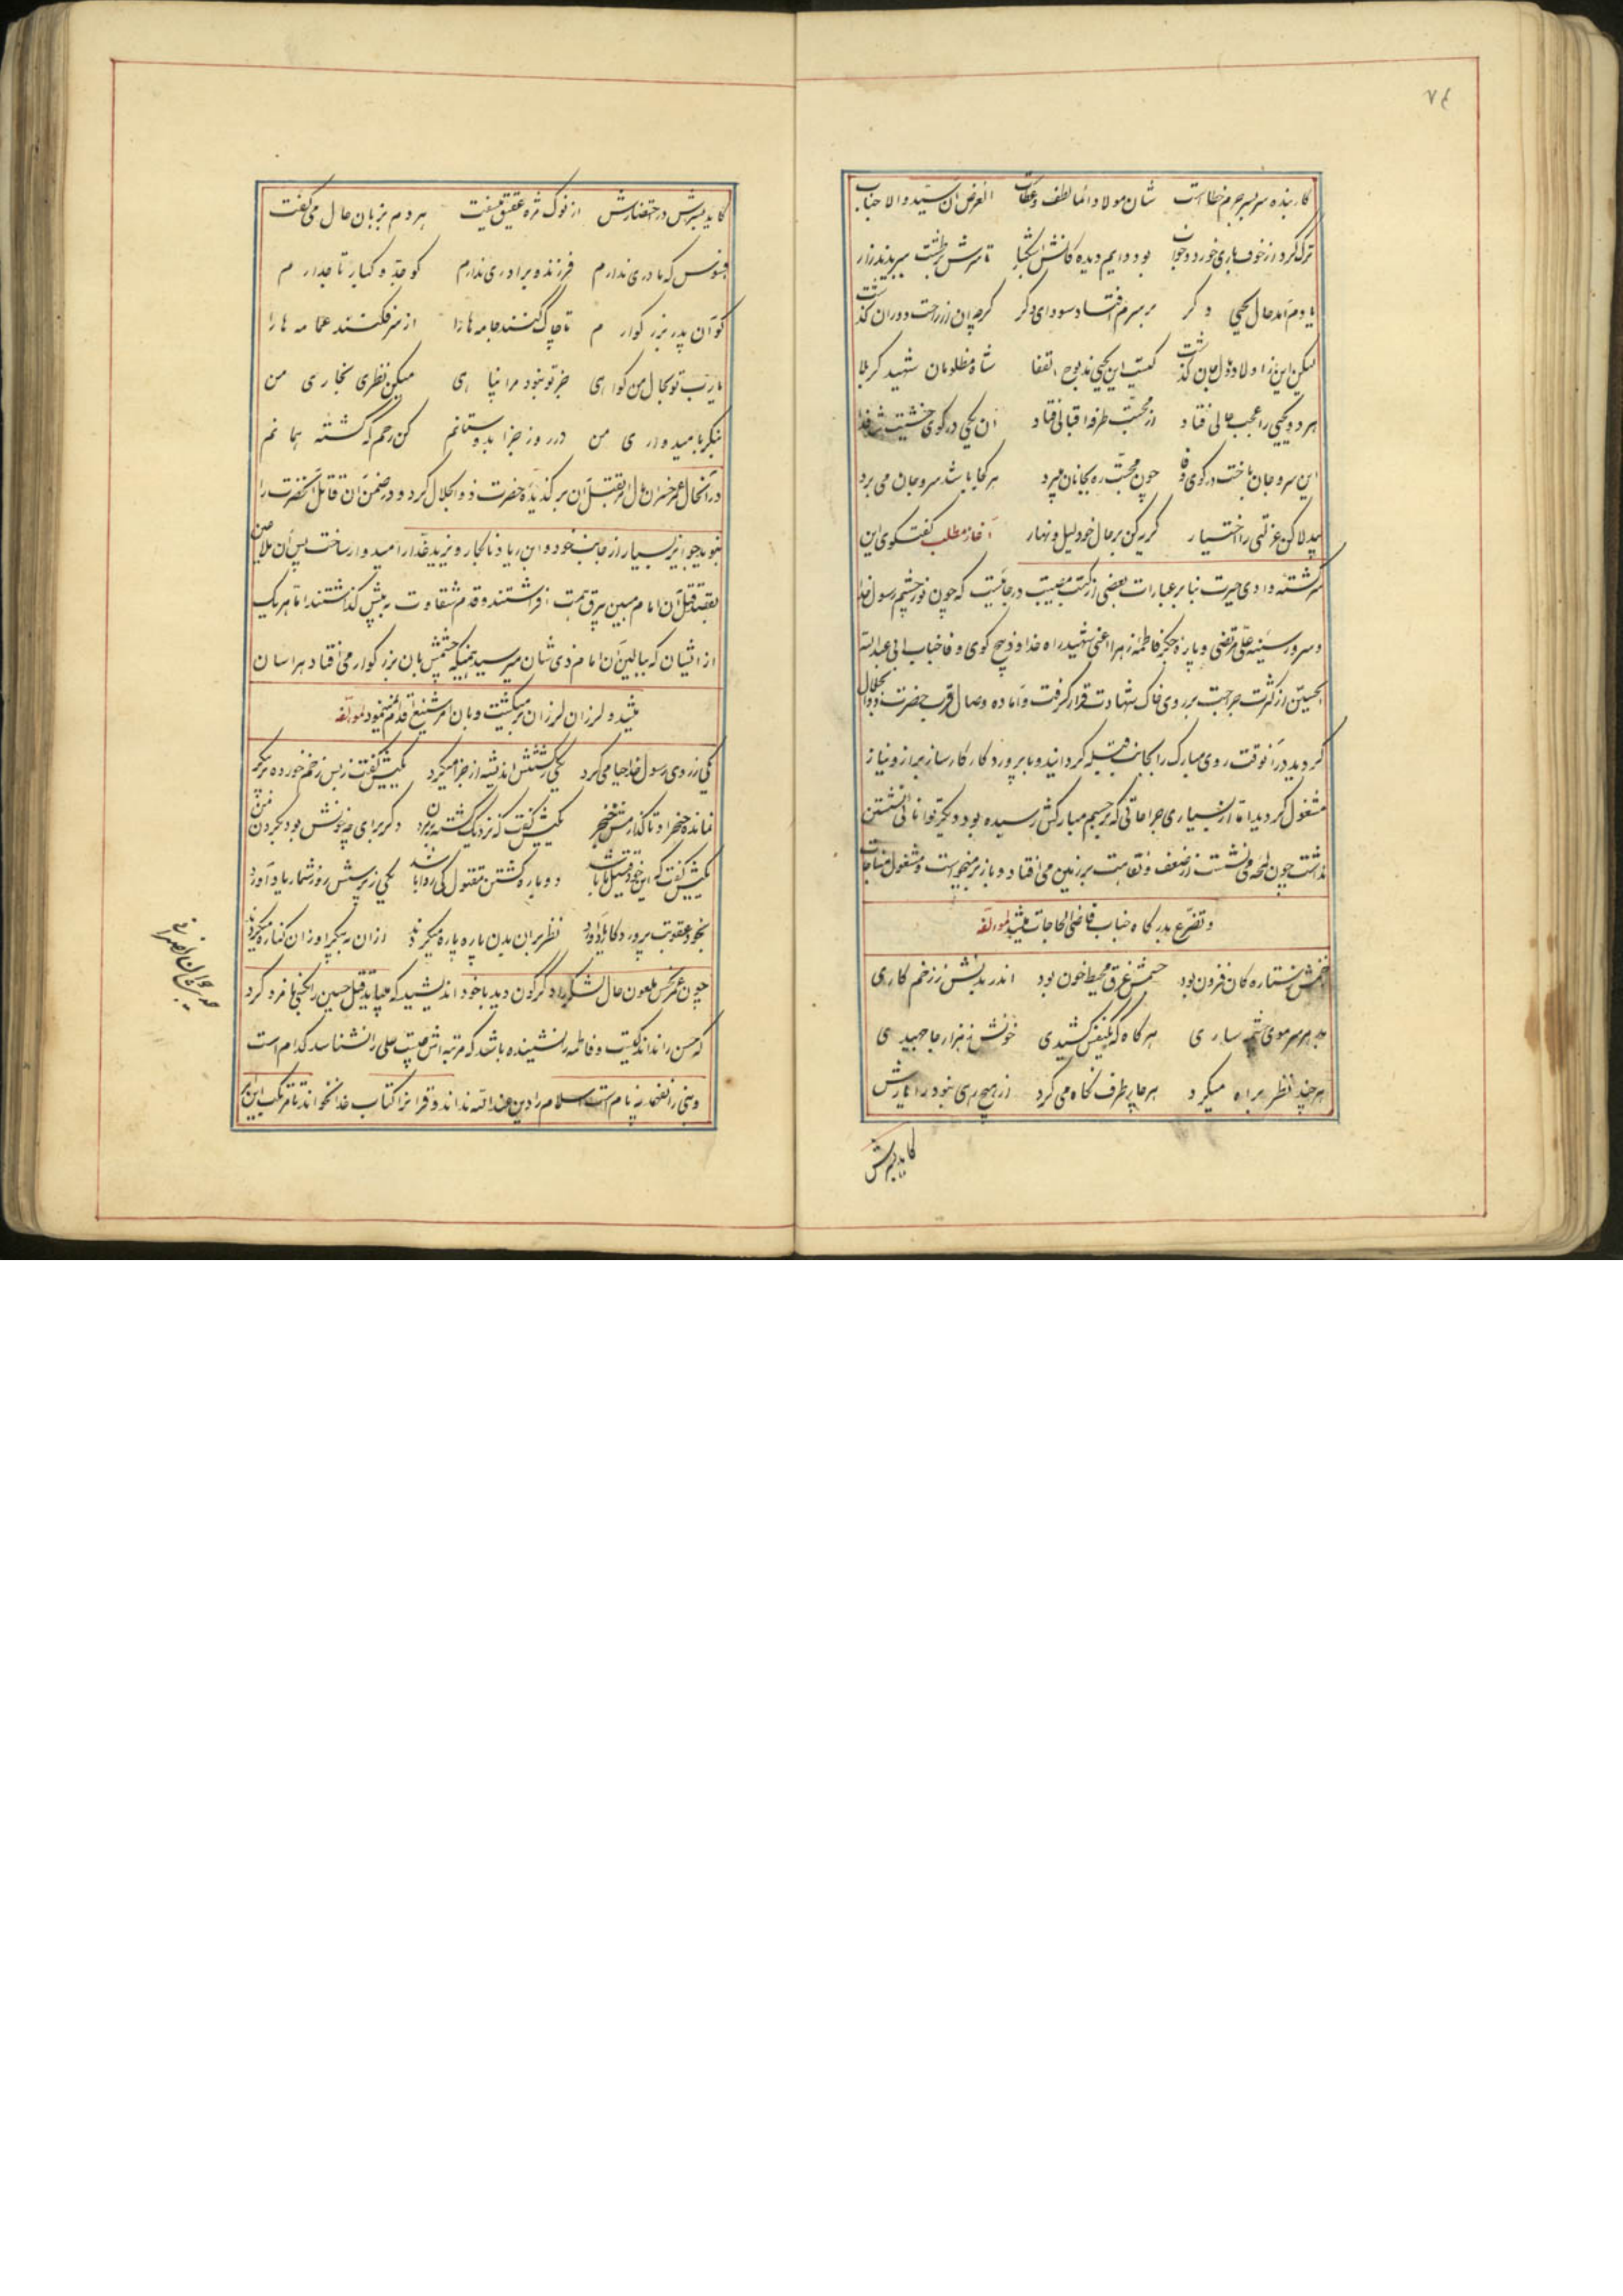 ٧٤
کار بنده سربسر جرم خطا است شان مولا دائما لطف و عطات الغرض آن سیّد والا جناب
ترک کرد از خوف باری خورد و خواب بود دایم دیده کانش اشکبار تا سرش در طشت ببریدند زار
یادم آمد حال یحیی دکر بر سرم افتاد سودای دکر کرچه آن از راحت دوران کذشت
لیکن این ز اولاد و مال و جان کذشت کیست این یحیی مذبوح القفا شاه مظلومان شهید کربلا
هر دو یحیی را عجب حالی فتاد از محبّت طرفه اقبالی فتاد آن یحیی در کوی خشیت شد فدا
این سر و جان باخت در کوی وفا چون محبّت ره بجانان میبرد هر کجا باشد سر و جان می برد
بیدلا کن عزلتی را اختیار کریه کن بر حال خود لیل و نهار آغاز مطلب کفتکوی این
سرکشته وادی حیرت بنا بر عبارات بعضی از کتب مصیبت در جائیست که چون نور چشم رسول خدا
و سرور سینه علی مرتضی و پاره جکر فاطمه زهرا اعنی شهید راه خدا و ذبیح کوی وفا جناب ابی عبدالله
الحسین از کثرت جراحت بر روی خاک شهادت قرار کرفت و آماده وصال قرب حضرت ذوالجلال
کردید در آنوقت روی مبارک را بجانب قبله کردانید و با پروردکار کارساز براز و نیاز
مشغول کردید امّا از بسیاری جراحاتی که بر جسم مبارکش رسیده بود دیکر توانائی نشستن
نداشت چون لمحه می نشست از ضعف و نقاهت بر زمین می افتاد و باز برمیخواست و مشغول مناجات
و تضرّع بدرکاه جناب قاضی الحاجات میشد لمؤلفه
زخمش ز ستاره کان فزون بود جسمش غرق محیط خون بود اندر بدنش ز زخم کاری
بد هر سر موی چشمه ساری هر کاه که یکنفس کشیدی خونش ز هزار جا جهیدی
هر چند نظر براه میکرد هر جا بر طرف نکاه می کرد از هیچ رهی نبود یارایش
کاید بسرش
کاید بسرش در احتضارش از نوک مژه عقیق میسفت هر دم بزبان حال می کفت
افسوس که مادری ندارم فرزند و برادری ندارم کو جدّ و کبار تاجدارم
کو آن پدر بزرکوارم تا چاک کنند جامه ها را از سر فکنند عمامه ها را
یا ربّ تو بحال من کواهی جز تو نبود مرا پناهی میکن نظری بخاری من
بنکر بامیدواری من در روز جزا بدوستانم کن رحم که کشته بمانم
در آنحال عمر خسران مآل امر بقتل آن برکذیدهٔ حضرت ذوالجلال کرد و در ضمن آن قاتل آنحضرت را
بنوید جوایز بسیار از جانب خود و ابن زیاد نابکار و یزید غدّار امیدوار ساخت پس آن ملاعین
بقصد قتل آن امام مبین بیرق همّت افراشتند و قدم شقاوت به پیش کذاشتند امّا هر یک
از ایشان که ببالین آن امام ذی شان میرسید همینکه چشمش بآن بزرکوار می افتاد هراسان
میشد و لرزان لرزان برمیکشت و بآن امر شنیع اقدام نمینمود لمؤلفه
یکی ز روی رسول خدا حیا می کرد یکی ز کشتنش اندیشه از جزا میکرد یکیش کفت ز بس زخم خورده بر پیکر
نمانده حنجر او تا کذارمش خنجر یکیش کفت که نزدیک کشته میمیرد دکر برای چه خونش بود بکردن من
یکیش کفت که این خود قتیل ما باشد دوباره کشتن مقتول کی روا باشد یکی ز پرسش روز شمار یاد آورد
بخود عقوبت پروردکار یاد آورد نظر بران بدن پاره پاره میکردند از آن به پیکر او زآن کناره میکردند
چون عمر نحس ملعون حال لشکر را دکرکون دید با خود اندیشید که میباید قتل حسین را بکسی نامزد کرد
که حسن را نداند کیست و فاطمه را نشنیده باشد که مرتبه اش چیست علی را نشناسد کدام است
و نبی را نفهمد چه نام است اسلام را دین عند الله نداند و قرآنرا کتاب خدا نخواند تا مرتکب این امر